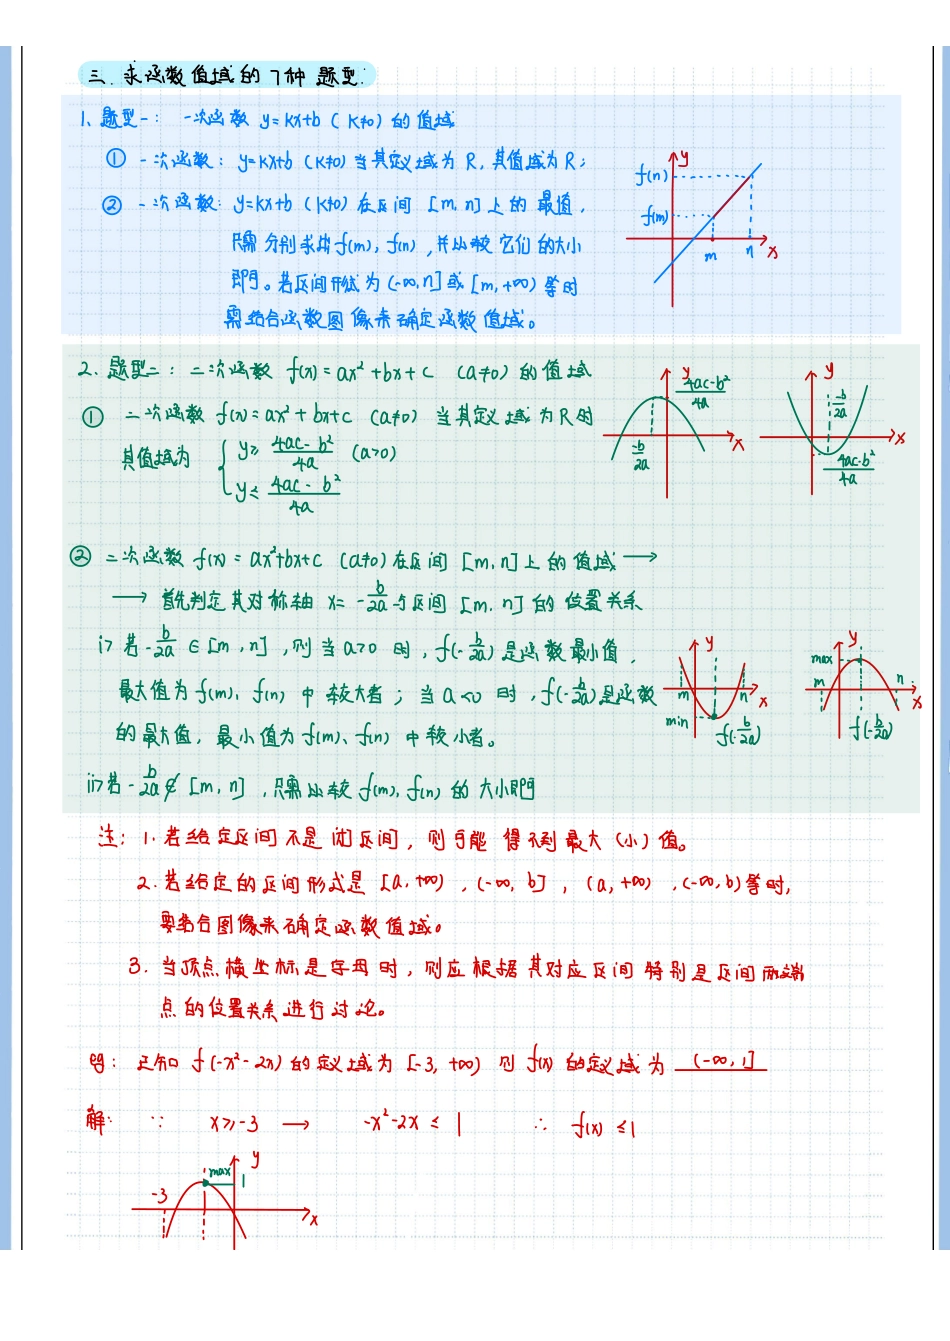 三. 求函数值域的7种 题型:
1、题型一: 一次函数 y=kx+b (k≠0) 的值域
① 一次函数: y=kx+b (k≠0) 当其定义域为 R, 其值域为 R;
② 一次函数: y=kx+b (k≠0) 在区间 [m, n] 上的 最值,
只需 分别求出 f(m), f(n), 并比较 它们的大小
即可。若区间形式为 (-∞, n] 或 [m, +∞) 等时
需结合函数图像来确定函数值域。
y
f(n)
f(m)
m
n
x
2. 题型二: 二次函数 f(x) = ax² + bx + c (a≠0) 的值域
① 二次函数 f(x) = ax² + bx+c (a≠0) 当其定义域为R时
其值域为 { y≥ 4ac-b²/4a (a>0)
y≤ 4ac-b²/4a
y
4ac-b²/4a
x
-b/2a
y
-b/2a
x
4ac-b²/4a
② 二次函数 f(x) = ax²+bx+c (a≠0) 在区间 [m, n] 上的值域 →
→ 首先判定其对称轴 x= -b/2a 与区间 [m, n] 的 位置关系
i> 若 -b/2a ∈ [m, n], 则当 a>0 时, f(-b/2a) 是函数最小值,
最大值为 f(m)、f(n) 中 较大者; 当 a<0 时, f(-b/2a) 是函数
的最大值, 最小值为 f(m)、f(n) 中较小者。
ii> 若 -b/2a ∉ [m, n], 只需比较 f(m), f(n) 的大小即可
y
m
n
x
min
f(-b/2a)
y
max
m
n
x
f(-b/2a)
注: 1. 若给定区间不是闭区间, 则可能 得不到最大(小)值。
2. 若给定的区间形式是 [a, +∞), (-∞, b], (a, +∞), (-∞, b) 等时,
要结合图像来确定函数值域。
3. 当顶点横坐标是字母时, 则应根据其对应区间特别是区间两端
点的位置关系进行讨论。
eg: 已知 f(-x²-2x) 的定义域为 [-3, +∞) 则 f(x) 的定义域为 (-∞, 1]
解: ∵ x≥-3 → -x²-2x ≤ 1 ∴ f(x) ≤1
y
max
1
-3
x